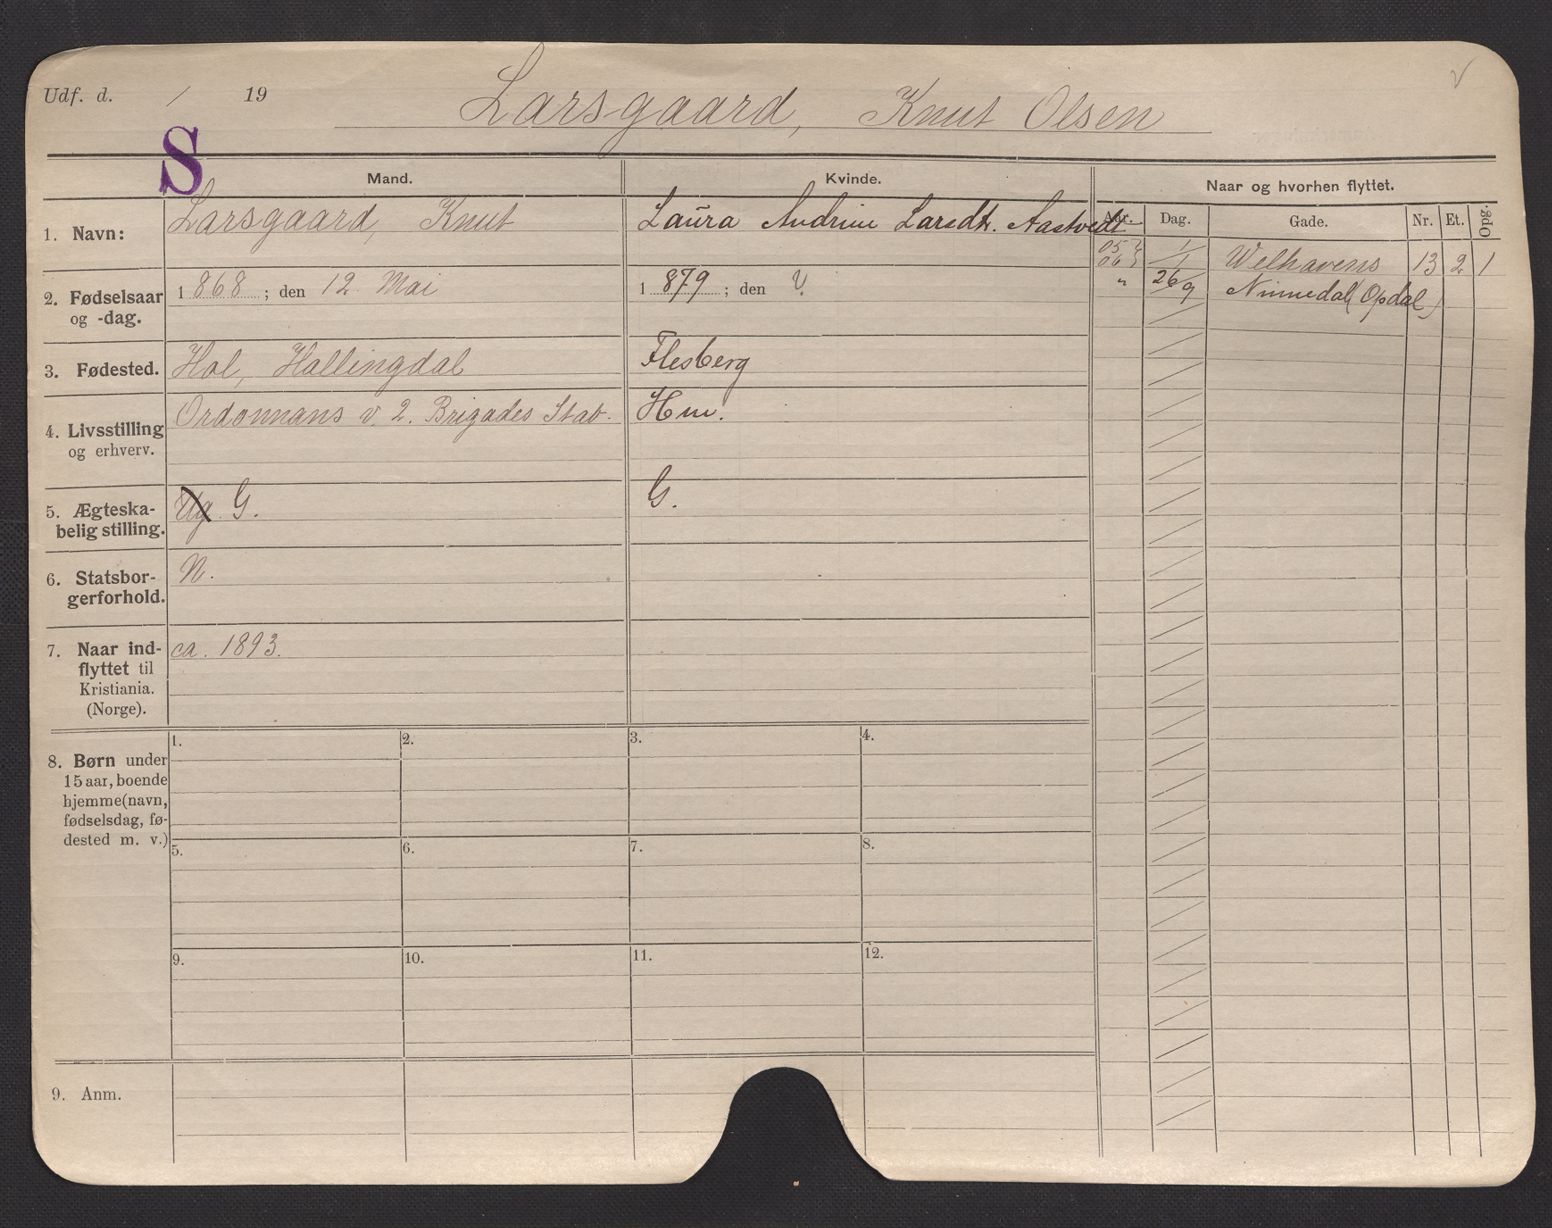 Udf. d. / 19
Larsgaard, Knut Olsen
S
Mand.
Kvinde.
Naar og hvorhen flyttet.
Aar. Dag. Gade. Nr. Et. Opg.
1. Navn: Larsgaard, Knut
Laura Andrine Larsdt. Aastvedt
05 1/1 Welhavens 13 2 1
06
" 26/9 Numedal (Opdal)
2. Fødselsaar og -dag. 1 868 ; den 12 Mai
1 879 ; den ?
3. Fødested. Hol, Hallingdal
Flesberg
4. Livsstilling og erhverv. Ordonnans v. 2. Brigades Stab.
Hm.
5. Ægteska-
belig stilling. Ug G.
G.
6. Statsbor-
gerforhold. N.
7. Naar ind-
flyttet til
Kristiania.
(Norge).
ca. 1893.
8. Børn under
15 aar, boende
hjemme (navn,
fødselsdag, fø-
dested m. v.)
1. 2. 3. 4.
5. 6. 7. 8.
9. 10. 11. 12.
9. Anm.